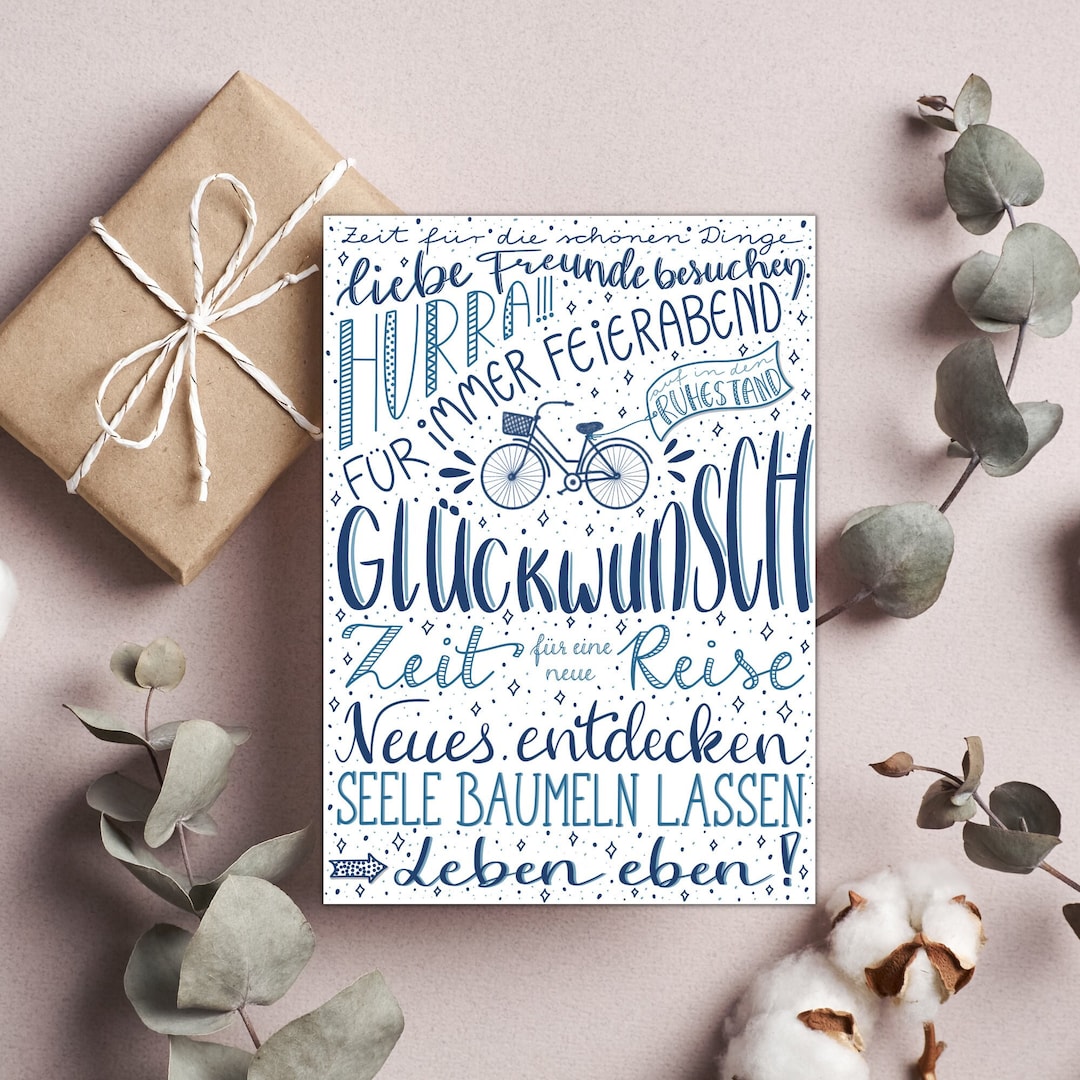 Zeit für die schönen Dinge
liebe Freunde besuchen
HURRA!!!
FÜR iMMER FEiERABEND
auf in den
RUHESTAND
GLÜCKWUNSCH
Zeit für eine neue Reise
Neues entdecken
SEELE BAUMELN LASSEN
Leben eben!